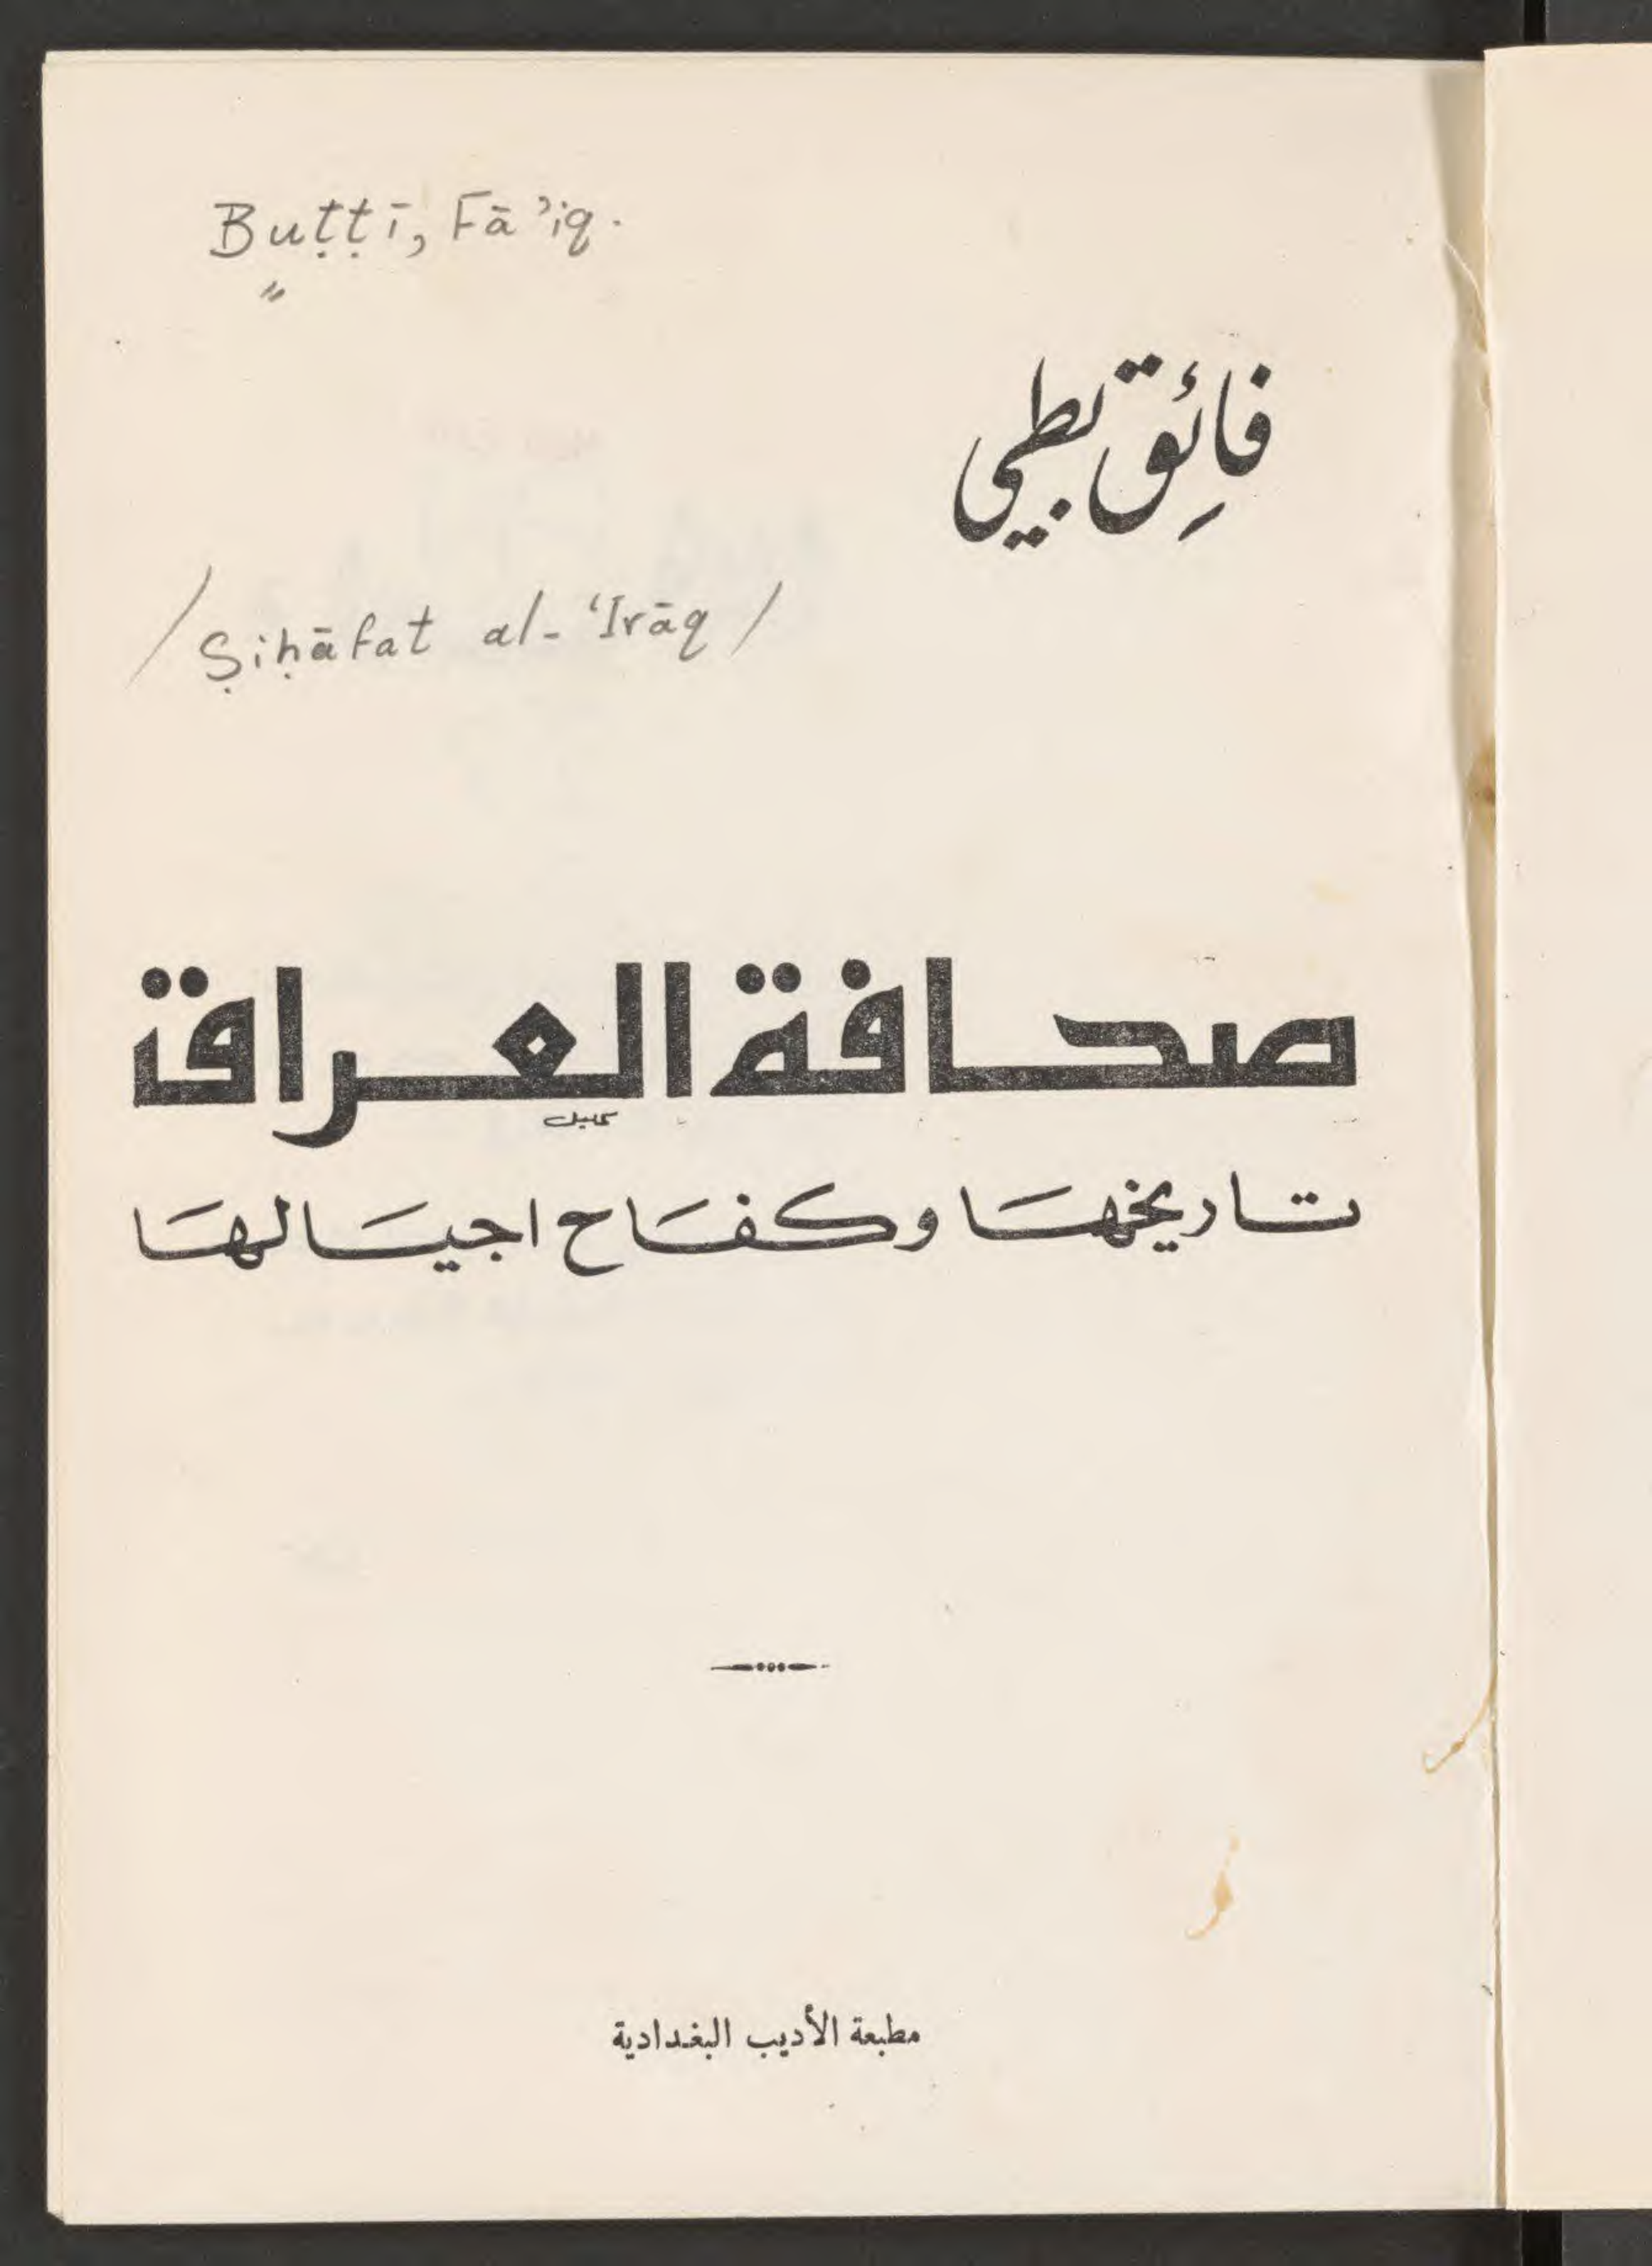 Buṭṭī, Fā'iq.
فائِق بطي
/ Ṣiḥāfat al-'Irāq /
صحافة العراق
تاريخها وكفاح اجيالها
مطبعة الأديب البغدادية